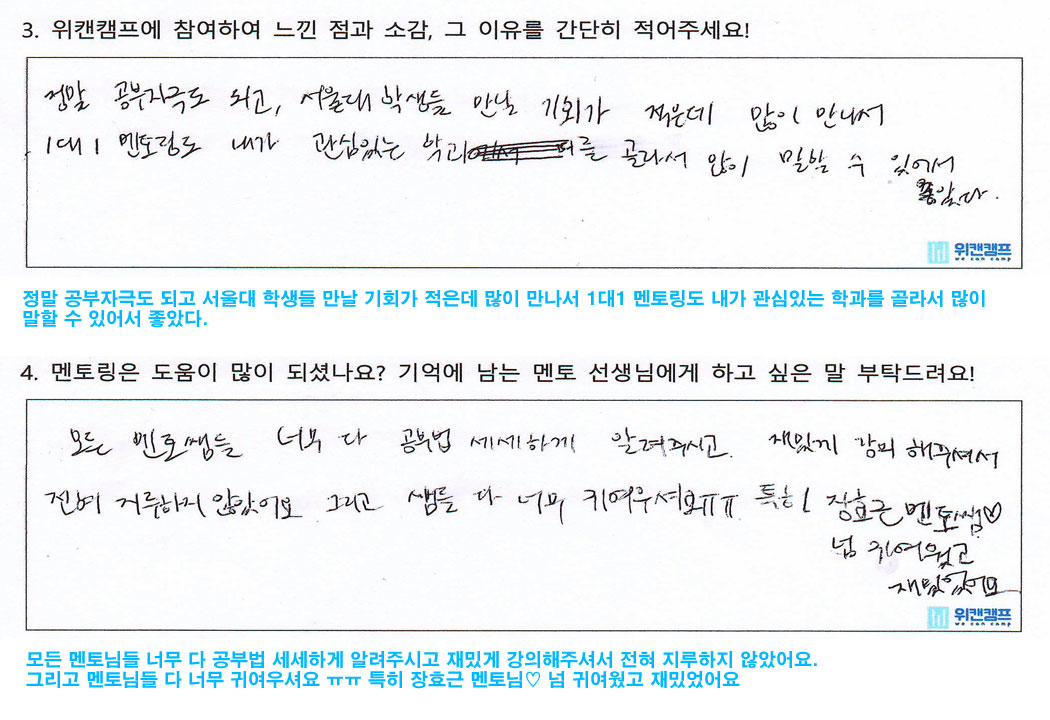 3. 위캔캠프에 참여하여 느낀 점과 소감, 그 이유를 간단히 적어주세요!
정말 공부자극도 되고, 서울대 학생들 만날 기회가 적은데 많이 만나서
1대1 멘토링도 내가 관심있는 학과를 골라서 많이 말할 수 있어서
좋았다.
위캔캠프
we can camp
정말 공부자극도 되고 서울대 학생들 만날 기회가 적은데 많이 만나서 1대1 멘토링도 내가 관심있는 학과를 골라서 많이
말할 수 있어서 좋았다.
4. 멘토링은 도움이 많이 되셨나요? 기억에 남는 멘토 선생님에게 하고 싶은 말 부탁드려요!
모든 멘토쌤들 너무 다 공부법 세세하게 알려주시고 재밌게 강의 해주셔서
전혀 지루하지 않았어요 그리고 쌤들 다 너무 귀여우셔요ㅠㅠ 특히 장효근 멘토쌤♡
넘 귀여웠고
재밌었어요
위캔캠프
we can camp
모든 멘토님들 너무 다 공부법 세세하게 알려주시고 재밌게 강의해주셔서 전혀 지루하지 않았어요.
그리고 멘토님들 다 너무 귀여우셔요 ㅠㅠ 특히 장효근 멘토님♡ 넘 귀여웠고 재밌었어요